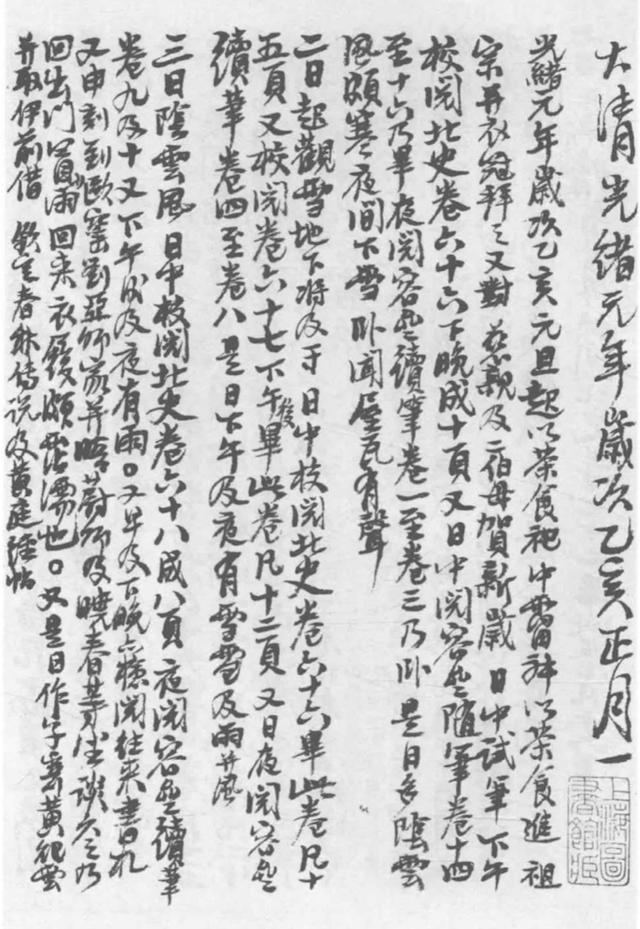 大清光緒元年歲次乙亥正月一
光緒元年歲次乙亥元旦起以茶食祀中霤神以茶食進 祖
宗并衣冠拜之又對 慈親及二伯母賀新歲 日中試筆下午
校閱北史卷六十六下晚成十頁又日中閱容齋隨筆卷十四
至十六乃畢夜閱容齋續筆卷一至卷三乃卧是日多陰雲
風頗寒夜間下雪卧聞屋瓦有聲
二日起觀雪地下將及寸 日中校閱北史卷六十六畢此卷凡十
五頁又校閱卷六十七下午後畢此卷凡十二頁 又日夜閱容齋
續筆卷四至卷八是日下午及夜有雪雪及雨并風
三日陰雲風 日中校閱北史卷六十八成八頁 夜閱容齋續筆
卷九及十又下午風及夜有雨。又早及下晚檢閱往來書札
又申刻到歐窯劉亞師家并晤蔚師及曉春等坐談久之乃
回出門冒雨回來衣履頗霑濡也。又是日作字寄黃
并取伊前借 欽定春秋傳說及黃庭經帖
上海圖書館藏